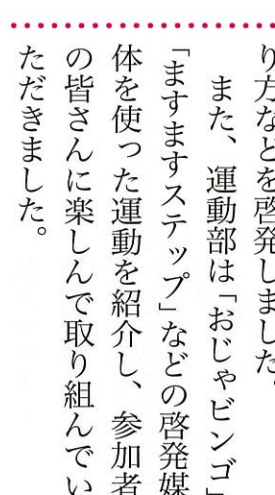 り方などを啓発しました。
また、運動部は「おじゃビンゴ」
「ますますステップ」などの啓発媒
体を使った運動を紹介し、参加者
の皆さんに楽しんで取り組んでい
ただきました。